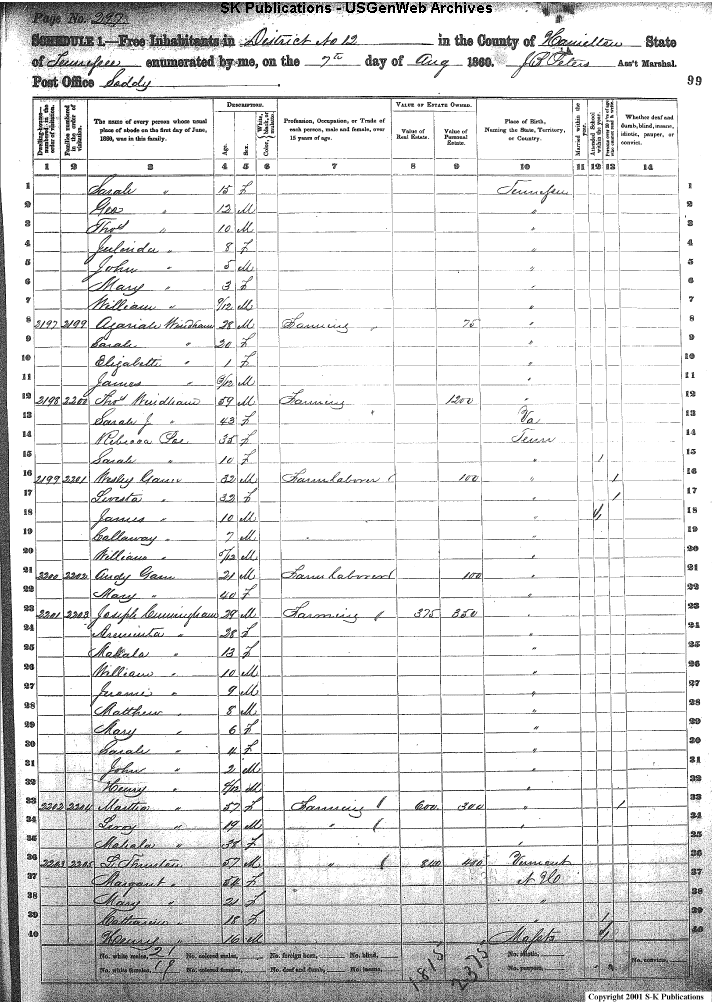 SK Publications - USGenWeb Archives
Page No. 297
SCHEDULE 1.—Free Inhabitants in District No 12 in the County of Hamilton State
of Tennessee enumerated by me, on the 7th day of Aug 1860. J. B. Peters Ass't Marshal.
Post Office Soddy
99
Dwelling-houses—numbered in the order of visitation.
Families numbered in the order of visitation.
The name of every person whose usual place of abode on the first day of June, 1860, was in this family.
DESCRIPTION.
Age.
Sex.
Color, {White, black, or mulatto.
Profession, Occupation, or Trade of each person, male and female, over 15 years of age.
VALUE OF ESTATE OWNED.
Value of Real Estate.
Value of Personal Estate.
Place of Birth, Naming the State, Territory, or Country.
Married within the year.
Attended School within the year.
Whether deaf and dumb, blind, insane, idiotic, pauper, or convict.
1 2 3 4 5 6 7 8 9 10 11 12 13 14
1 Sarah " 15 F Tennessee 1
2 Geo " 12 M " 2
3 Thos " 10 M " 3
4 Julinda " 8 F " 4
5 John " 5 M " 5
6 Mary " 3 F " 6
7 William " 9/12 M " 7
8 2197 2199 Azariah Windham 28 M Farming " 75 " 8
9 Sarah " 20 F " 9
10 Elizabeth " 1 F " 10
11 James " /12 M " 11
12 2198 2200 Thos Windham 59 M Farming 1200 " 12
13 Sarah J " 43 F " Va 13
14 Rebecca Poe 35 F Tenn 14
15 Sarah " 10 F " 1 15
16 2199 2201 Wesley Gann 32 M Farm laborer 100 " 1 16
17 Levesta " 32 F " 1 17
18 James " 10 M " 1 18
19 Callaway " 7 M " 19
20 William " /12 M " 20
21 2200 2202 Andy Gann 21 M Farm laborer 100 " 21
22 Mary " 40 F " 22
23 2201 2203 Joseph Cunningham 29 M Farming 375 350 " 23
24 Arminta " 28 F " 24
25 Mahala " 13 F " 25
26 William " 10 M " 26
27 " 9 M " 27
28 Matthew " 8 M " 28
29 Mary " 6 F " 29
30 Sarah " 4 F " 30
31 John " 2 M " 31
32 Henry " /12 M " 32
33 2202 2204 Martha " 57 F Farming 600 300 " 1 33
34 Leroy " 19 M " " 34
35 Mahala " 38 F " 35
36 2203 2205 L Thurston 57 M " 840 400 Vermont 36
37 Margaret " 50 F " N Y 37
38 Mary " 21 F " 38
39 Catharine " 18 F " 1 39
40 Henry " 16 M Massts 1 40
No. white males, 21 No. colored males, No. foreign born, No. blind, 1815 2375 No. idiotic, No. convicts,
No. white females, 19 No. colored females, No. deaf and dumb, No. insane, No. paupers,
Copyright 2001 S-K Publications